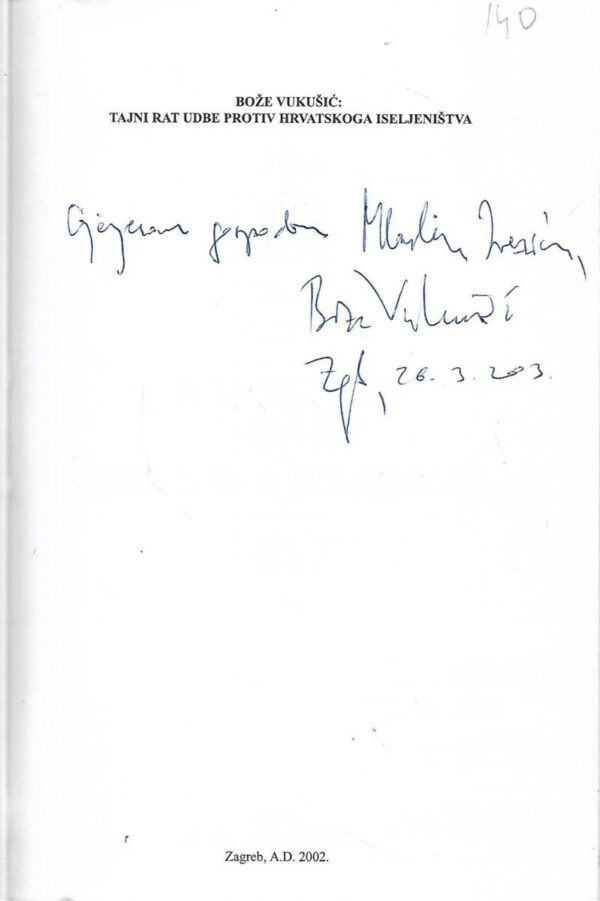 140
BOŽE VUKUŠIĆ:
TAJNI RAT UDBE PROTIV HRVATSKOGA ISELJENIŠTVA
gospodinu
Bože Vukušić
Zgb, 26. 3. 2003.
Zagreb, A.D. 2002.